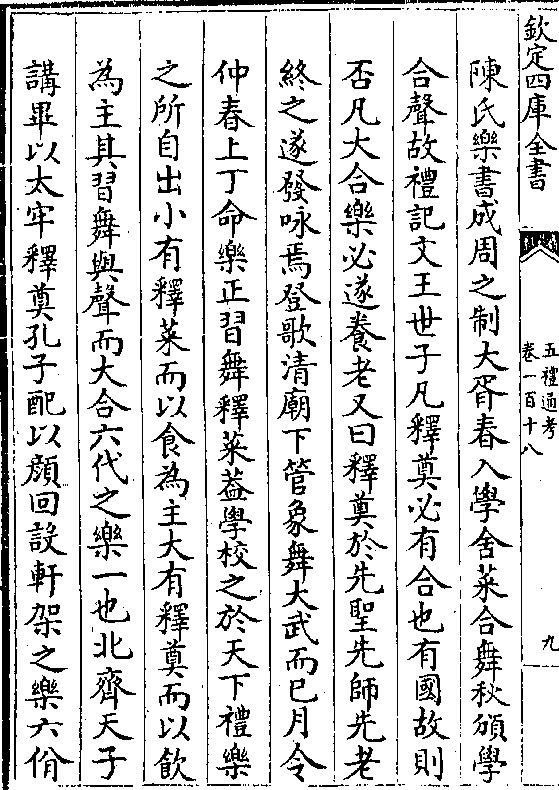 欽定四庫全書
五禮通考
卷一百十八
九
陳氏樂書成周之制大胥春入學舍菜合舞秋頒學
合聲故禮記文王世子凡釋奠必有合也有國故則
否凡大合樂必遂養老又曰釋奠於先聖先師先老
終之遂發咏焉登歌清廟下管象舞大武而已月令
仲春上丁命樂正習舞釋菜葢學校之於天下禮樂
之所自出小有釋菜而以食為主大有釋奠而以飲
為主其習舞與聲而大合六代之樂一也北齊天子
講畢以太牢釋奠孔子配以顔回設軒架之樂六佾